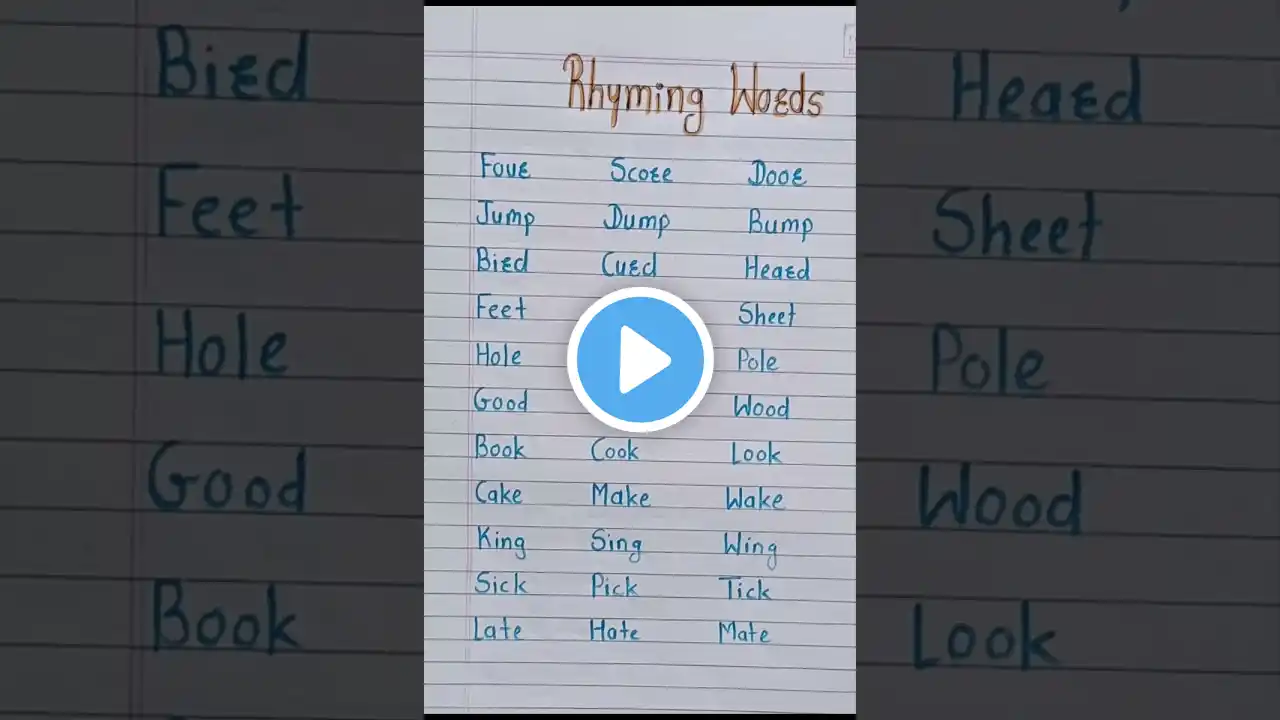 Rhyming Words
Four Score Door
Jump Dump Bump
Bird Curd Heard
Feet Sheet
Hole Pole
Good Wood
Book Cook Look
Cake Make Wake
King Sing Wing
Sick Pick Tick
Late Hate Mate
Bird Heard
Feet Sheet
Hole Pole
Good Wood
Book Look